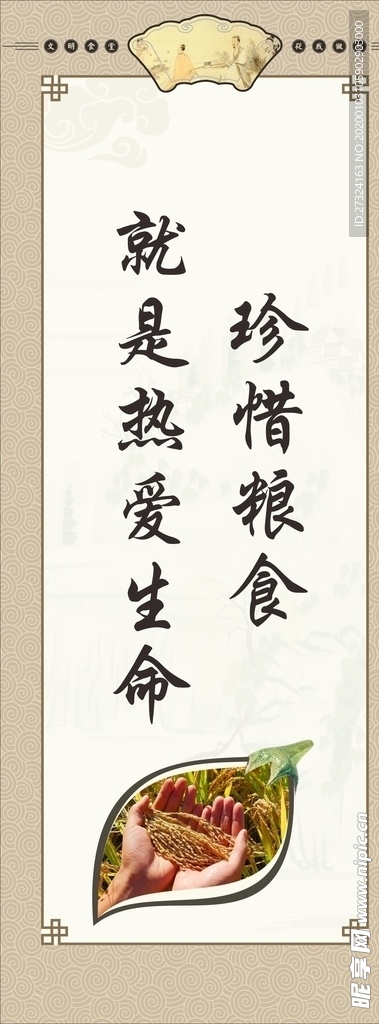 文明食堂
从我做
珍惜粮食
就是热爱生命
ID:27324163 NO:20200103105902903000
昵享网 www.nipic.cn